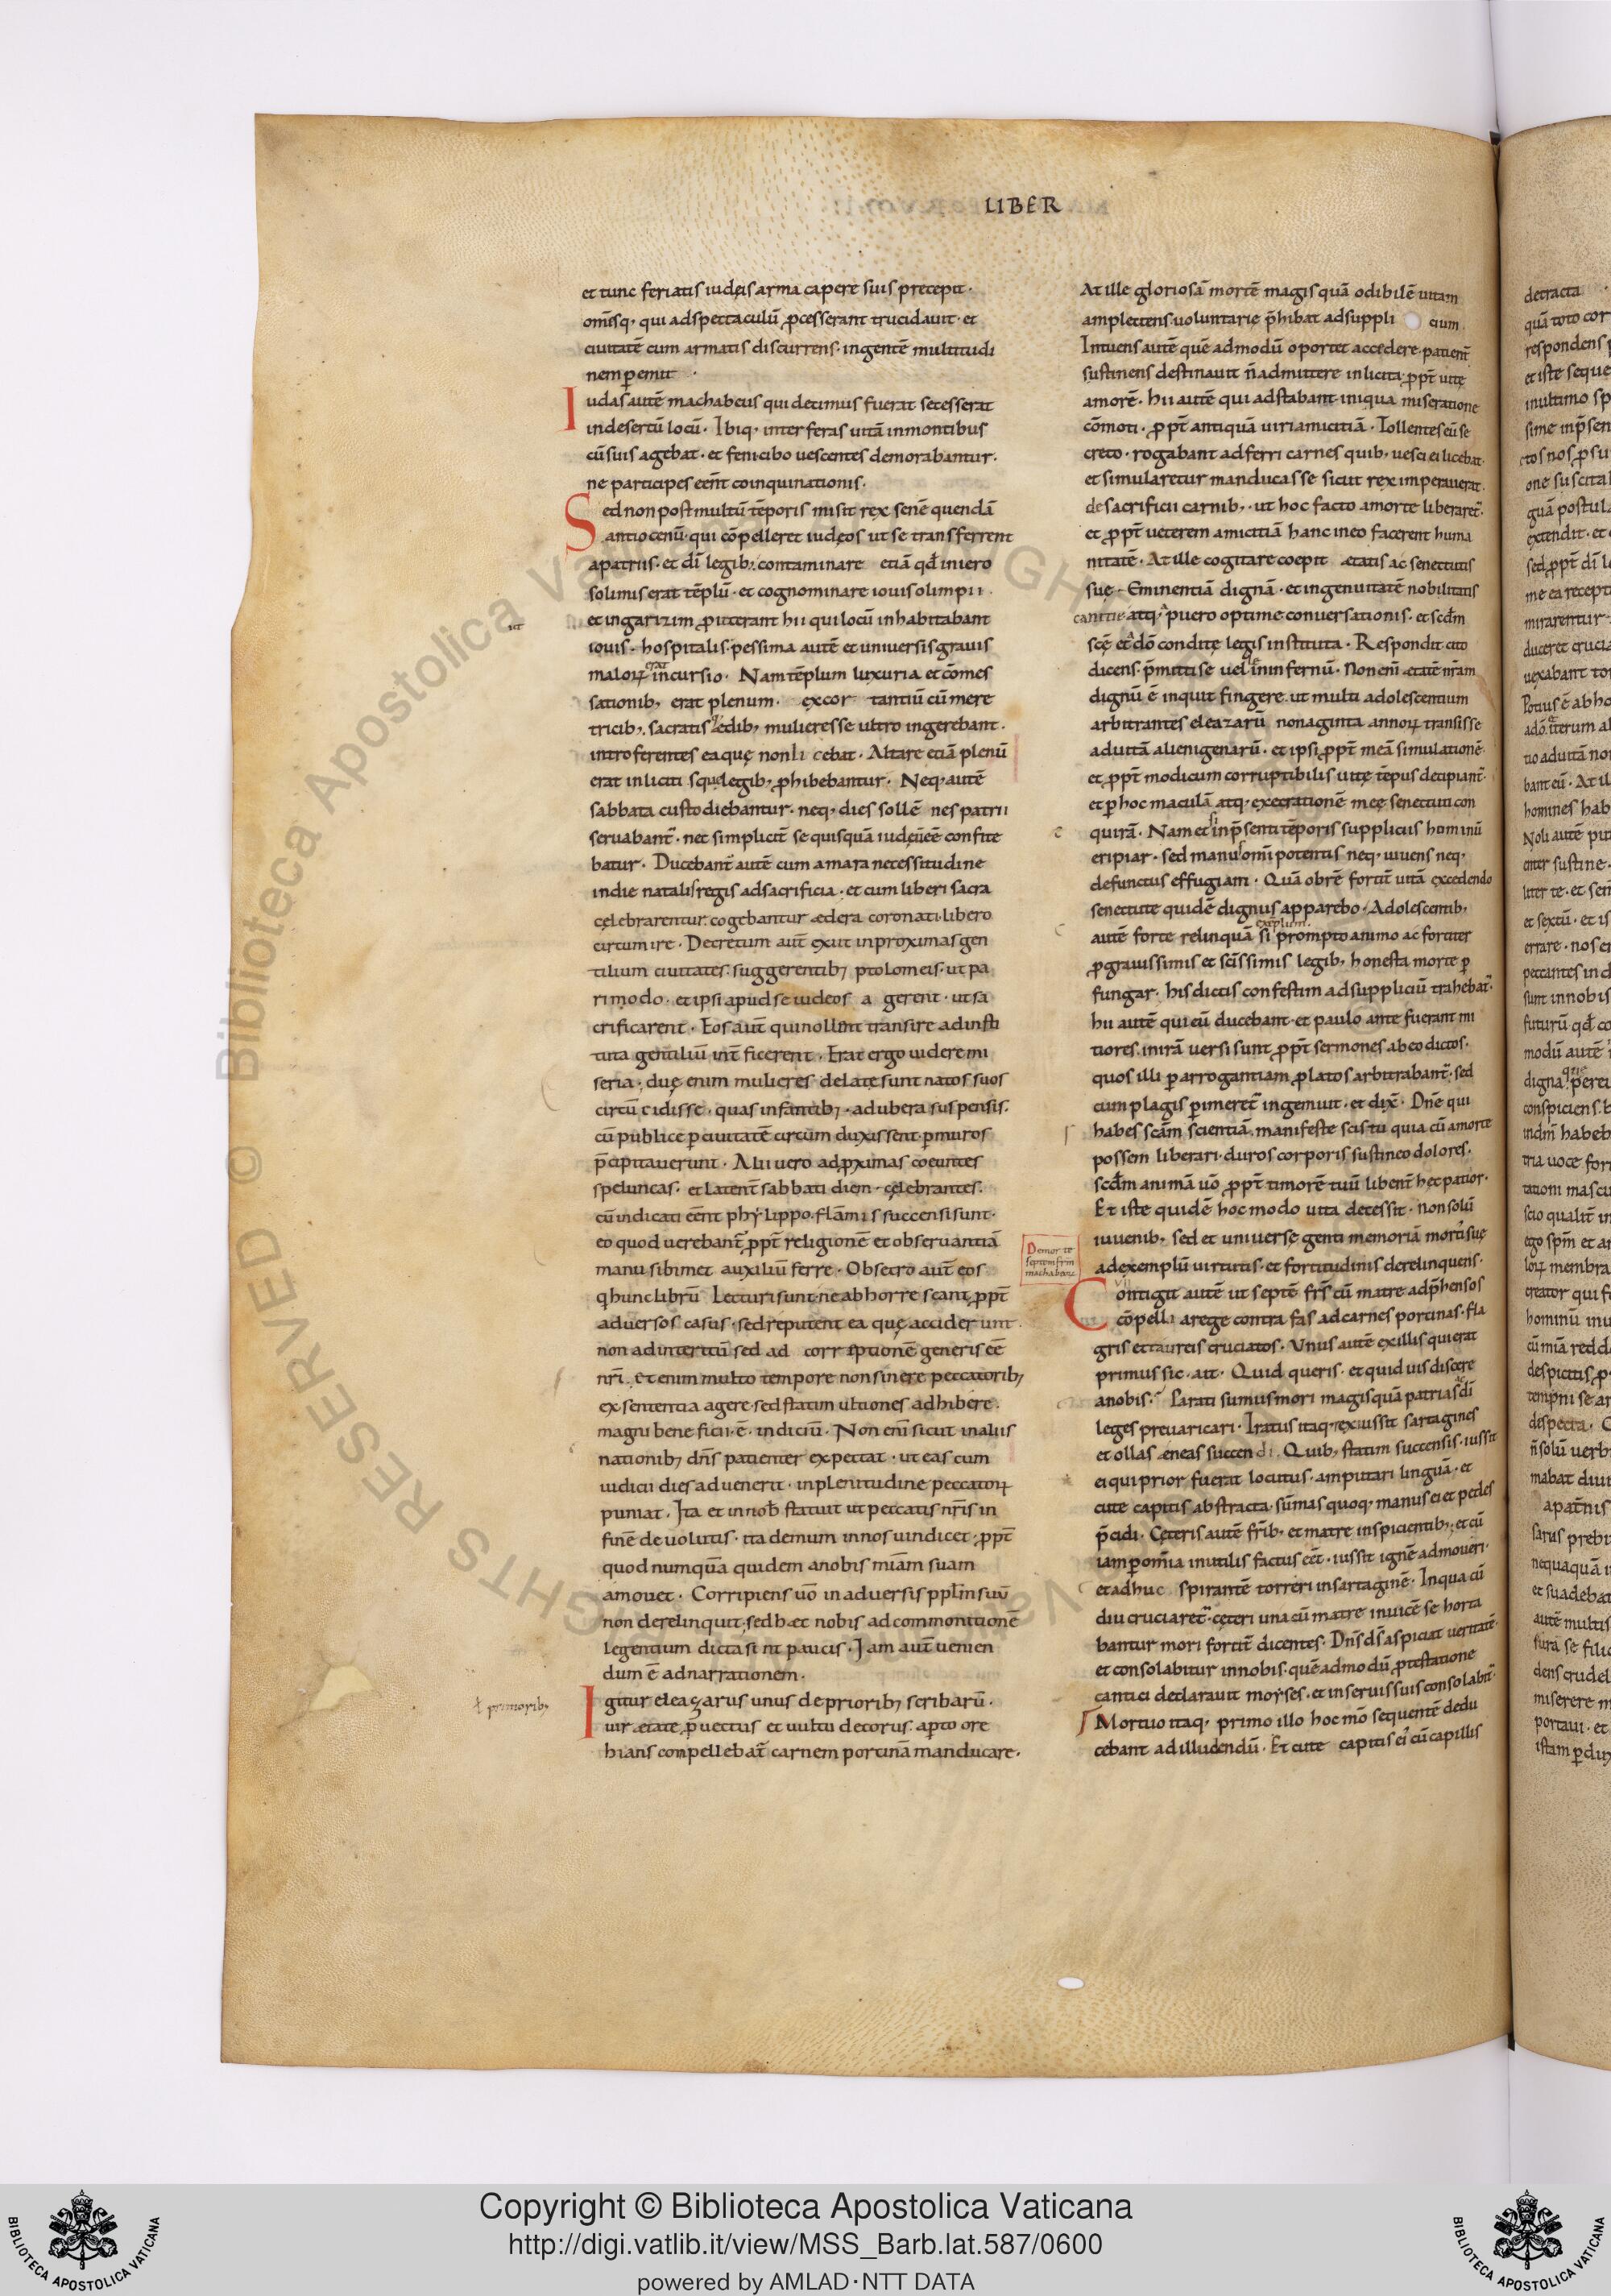 LIBER
et tunc feriatis iudęis arma capere suis precepit ·
om̄esq; qui adspectaculū ꝓcesserant trucidauit · et
ciuitatē cum armatis discurrens · ingentē multitudi
nem ꝑemit ·
Iudas autē machabeus qui decimus fuerat secesserat
indesertū locū · Ibiq; inter feras uitā inmontibus
cū suis agebat · et feni cibo uescentes demorabantur ·
ne participes eēnt coinquinationis ·
Sed non post multū tēporis misit rex senē quendā
antiocenū · qui cōpelleret iudęos ut se transferrent
apatriis · et dī legib; · contaminare etiā qđ iniero
solimis erat tēplū · et cognominare iouis olimpii ·
ut
et ingarizim ꝓut erant hii qui locū inhabitabant
iouis · hospitalis · pessima autē et uniuersis grauis
erat
maloꝝ incursio · Nam tēplum luxuria et cōmes
sationib; erat plenum · excor tantiū cū mere
tricib; · sacratisq; ędib; mulieres se ultro ingerebant ·
intro ferentes ea quę non li cebat · Altare etiā plenū
erat inlicitis quę legib; ꝓhibebantur · Neq; autē
sabbata custodiebantur · neq; dies sollē nes patrii
seruabant̄ · nec simplicit̄ se quisquā iudęū eē confite
batur · Ducebant̄ autē cum amara necessitudine
in die natalis regis ad sacrificia · et cum liberi sacra
cęlebrarentur · cogebantur ędera coronati · libero
circum ire · Decretum aut̄ exiit in proximas gen
tilium ciuitates · suggerentib; ptolomeis · ut pa
ri modo · et ipsi apud se iudeos a gerent · ut sa
crificarent · Eos aut̄ qui nollent transire ad insti
tuta gentiliū int̄ficerent · Erat ergo uidere mi
seria · duę enim mulieres delatę sunt natos suos
circū cidisse · quas infantib; · ad ubera suspensis ·
cū publice ꝑ ciuitatē circum duxissent · ꝑ muros
p̄cipitauerunt · Alii uero ad ꝓximas coeuntes
speluncas · et latent̄ sabbati diem · cęlebrantes ·
cū indicati eēnt phylippo · flāmis succensi sunt ·
eo quod uerebant̄ ꝓpt̄ religionē et obseruantiā
manu sibimet auxiliū ferre · Obsecro aut̄ eos
q̇ hunc librū Lecturi sunt · ne abhorre scant ꝓpt̄
aduersos casus · sed reputent ea quę acciderunt ·
non ad interitū sed ad corr iptionē generis eē
nr̄i · Et enim multo tempore non sinere peccatorib;
ex sententia agere · sed statim ultiones adhibere ·
magni beneficii · ē · indiciū · Non eni sicut in aliis
nationib; dn̄s patienter expectat · ut eas cum
iudicii dies aduenerit · in plenitudine peccatoꝝ
puniat · Ita et in nob̄ statuit ut peccatis nr̄is in
finē deuolutis · ita demum in nos uindicet · ꝓpt̄
quod numquā quidem anobis mīam suam
amouet · Corripiens uō in aduersis ppl̄m suū
non derelinquit · sed hæc nobis ad commonitionē
legentium dicta si nt paucis · Iam aut̄ uenien
dum ē ad narrationem ·
Igitur eleaçarus unus de priorib; scribarū ·
ł primorib;
uir ætate ꝓuectus et uultu decorus · apto ore
hians compellebat̄ carnem porcinā manducare ·
At ille gloriosā mortē magis quā odibilē uitam
amplectens · uoluntarie p̄hibat ad suppli cium
Intuens autē quē admodū oportet accedere · patient̄
sustinens destinauit n̄ admittere inlicita · ꝓpt̄ uitę
amorē · hii autē qui adstabant · iniqua miseratione
cōmoti · ꝓpt̄ antiquā uiri amicitiā · Tollentes eū se
creto · rogabant adferri carnes quib; uesci ei licebat ·
et simularetur manducasse sicut rex imperauerat ·
de sacrificii carnib; · ut hoc facto amorte liberaret̄ ·
et ꝓpt̄ ueterem amicitiā hanc in eo facerent huma
nitatē · At ille cogitare coepit ætatis ac senectutis
suę · Eminentiā dignā · et ingenuitatē nobilitatis
canitie atq; puero optime conuersationis · et scd̄m
scę et a dō condite legis instituta · Respondit cito
dicens · p̄mitti se uel in infernū · Non eni ætatē nr̄am
dignū ē inquit fingere · ut multi adolescentium
arbitrantes eleazarū nonaginta annoꝝ transisse
ad uitā alienigenarū · et ipsi ꝓpt̄ meā simulationē ·
et ꝓpt̄ modicum corruptibilis uitę tēpus decipiant̄ ·
et ꝑ hoc maculā atq; execrationē meę senectuti con
quirā · Nam etsi in p̄senti tēporis suppliciis hominū
eripiar · sed manū omīpotentis neq; uiuens neq;
defunctus effugiam · Quā obrē fortit̄ uitā excedendo
senectute quidē dignus apparebo · Adolescentib;
exēplum
autē forte relinquā si prompto animo ac fortiter
ꝓ grauissimis et scīssimis legib; honesta morte ꝑ
fungar · his dictis confestim ad suppliciū trahebat̄ ·
hii autē qui eū ducebant · et paulo ante fuerant mi
tiores · in irā uersi sunt ꝓpt̄ sermones ab eo dictos ·
quos illi ꝑ arrogantiam ꝓlatos arbitrabant̄ · sed
cum plagis ꝑimeret̄ ingemuit · et dix̄ · Dn̄e qui
habes scām scientiā · manifeste scis tu quia cū amorte
possem liberari · duros corporis sustineo dolores ·
scd̄m animā uō ꝓpt̄ timorē tuū libent̄ hęc patior ·
Et iste quidē hoc modo uita decessit · non solū
iuuenib; sed et uniuersę genti memoriā mortis suę
ad exemplū uirtutis · et fortitudinis derelinquens ·
De morte
septem frm
machabeoꝝ
VII
Contigit autē ut septē fr̄s cū matre adp̄hensos
cōpelli arege contra fas ad carnes porcinas · fla
gris et taureis cruciatos · Unus autē ex illis qui erat
primus sic · ait · Quid queris · et quid uis discere
anobis · Parati sumus mori magis quā patrias dī
leges preuaricari · Iratus itaq; rex iussit sartagines
et ollas æneas succendi · Quib; statim succensis · iussit
ei qui prior fuerat locutus · amputari linguā · et
cute capitis abstracta · sūmas quoq; manus ei et pedes
p̄cidi · Cęteris autē frīb; et matre inspicientib; · et cū
iam ꝑ omīa inutilis factus eēt · iussit ignē admoueri ·
et adhuc spirantē torreri in sartaginē · In qua cū
diu cruciaret̄ · cęteri una cū matre inuicē se horta
bantur mori fortit̄ dicentes · Dn̄s d̄s aspiciat ueritatē ·
et consolabitur in nobis · quē admodū ꝓtestatione
cantici declarauit moyses · et in seruis suis consolabit̄ ·
Mortuo itaq; primo illo hoc mō sequentē dedu
cebant ad illudendū · Et cute capitis ei cū capillis
Copyright © Biblioteca Apostolica Vaticana
http://digi.vatlib.it/view/MSS_Barb.lat.587/0600
powered by AMLAD·NTT DATA